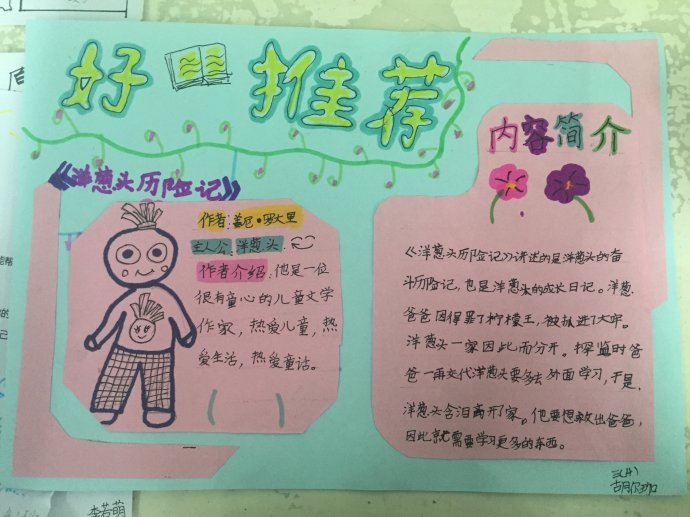 好 推荐
《洋葱头历险记》
作者:盖尼·罗大里
主人公:洋葱头.
作者介绍:他是一位
很有童心的儿童文学
作家,热爱儿童,热
爱生活,热爱童话。
内容简介
《洋葱头历险记》讲述的是洋葱头的奋
斗历险记,也是洋葱头的成长日记。洋葱
爸爸因得罪了柠檬王,被抓进了大牢。
洋葱头一家因此而分开。探监时爸
爸一再交代洋葱头要多去外面学习,于是.
洋葱头含泪离开了家。他要想救出爸爸,
因此就需要学习更多的东西。
李若萌